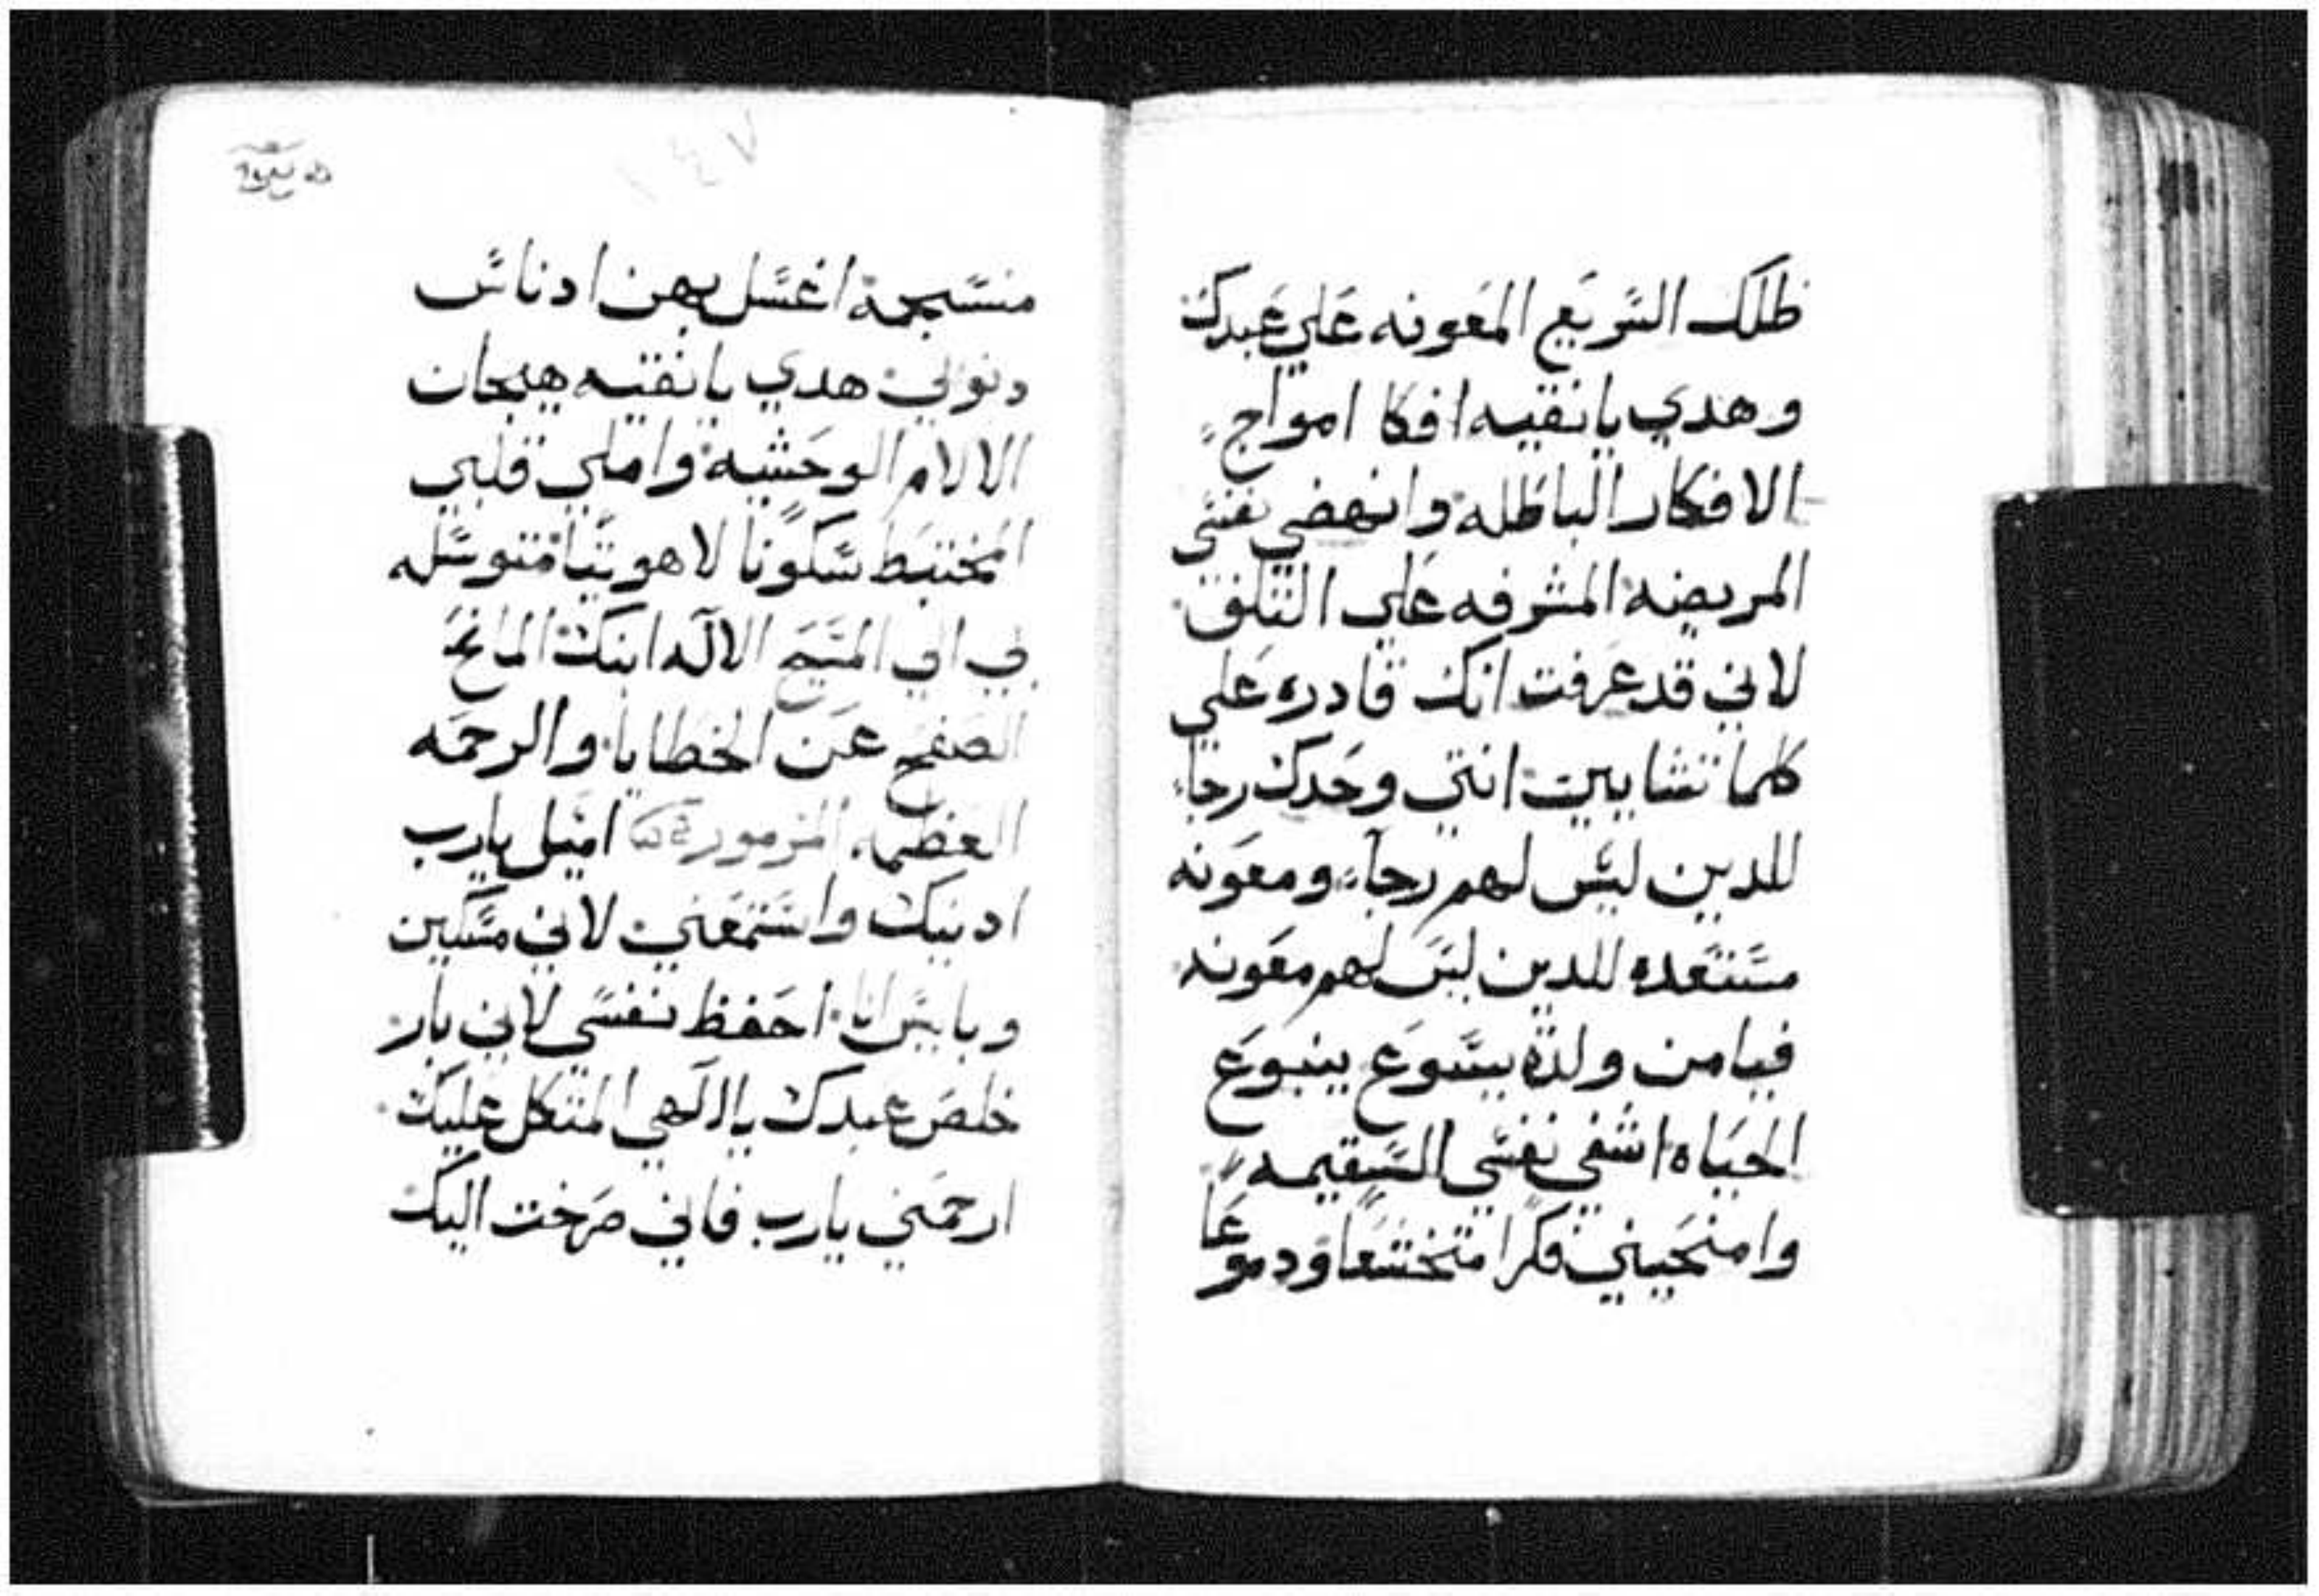 ظلك السريع المعونه علي عبدك
وهدي يا نقيه افكا امواج
الافكار الباطله وانهضي نفسي
المريضه المشرفه علي التلف
لاني قد عرفت انك قادره علي
كلما تشايين انتي وحدك رجاء
للدين ليس لهم رجاء ومعونه
مستعده للدين ليس لهم معونه
فيا من ولدة يسوع ينبوع
الحياه اشفي نفسي السقيمه
وامنحيني فكرا متخشعا ودموعا
منسجمة اغسل بهن ادناس
دنوبي هدي يا نقيه هيجان
الالام الوحشيه واملي قلبي
المختبط سكونا لاهوتيا متوسله
في الي المسيح الاله ابنك المانح
الصفح عن الخطايا والرحمه
العظمه المزمور اميل يا رب
ادنيك واستمعني لاني مسكين
وبايس انا احفظ نفسي لاني بار
خلص عبدك يا الاهي المتكل عليك
ارحمني يا رب فاني صرخت اليك